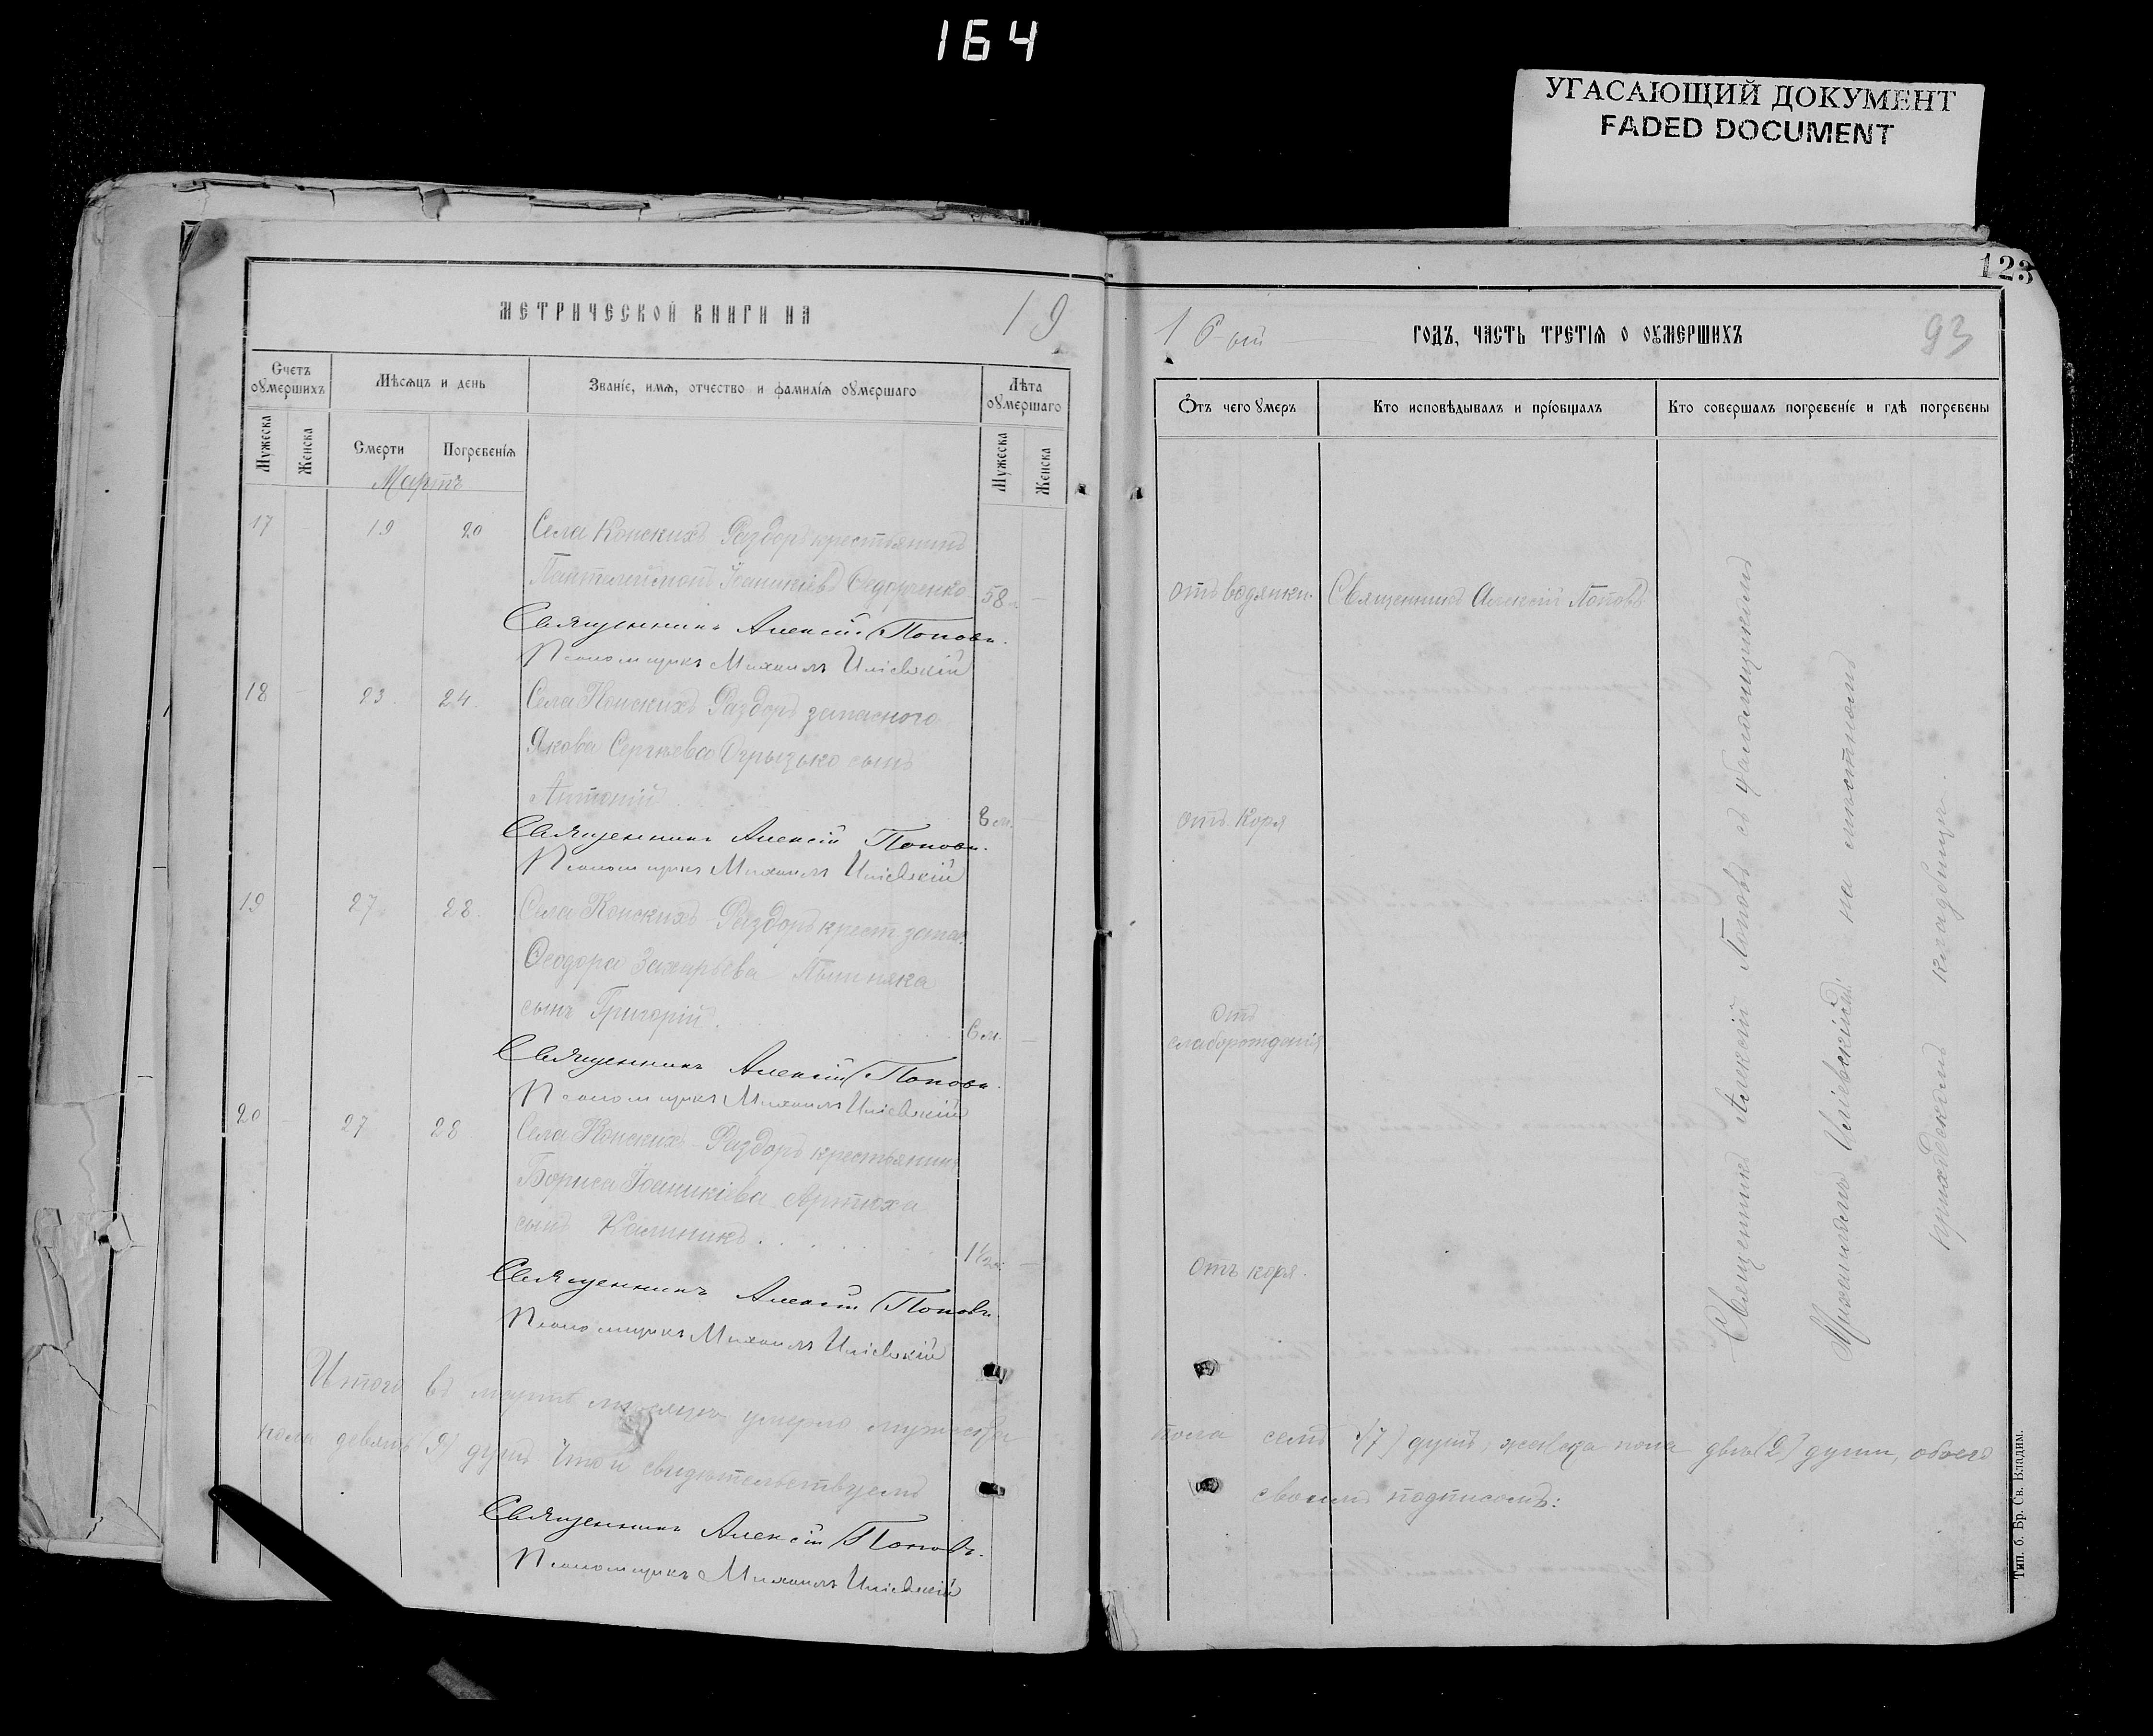 164
УГАСАЮЩИЙ ДОКУМЕНТ
FADED DOCUMENT
123
МЕТРИЧЕСКОЙ КНИГИ НА 19
Счетъ оумершихъ
Мѣсяцъ и день
Званіе, имя, отчество и фамилія оумершаго
Лѣта оумершаго
Мужеска
Женска
Смерти
Погребенія
Мужеска
Женска
Мартъ
17 19 20 Села Конскихъ Раздоръ крестьянинъ
Пантелеймонъ Іоаникіевъ Ѳедорченко 58
Священникъ Алексій Поповъ.
Псаломщикъ Михаилъ Иліевскій
18 23 24 Села Конскихъ Раздоръ запасного
Якова Сергѣева Огрызько сынъ
Антоній 8 м.
Священникъ Алексій Поповъ.
Псаломщикъ Михаилъ Иліевскій
19 27 28 Села Конскихъ-Раздоръ крест. запас.
Ѳеодора Захарьева
сынъ Григорій. 6 м.
Священникъ Алексій Поповъ.
Псаломщикъ Михаилъ Иліевскій
20 27 28 Села Конскихъ-Раздоръ крестьянина
Бориса Іоаникіева Артюха
сынъ Калиникъ 1½
Священникъ Алексій Поповъ.
Псаломщикъ Михаилъ Иліевскій
Итого въ мартѣ мѣсяцѣ умерло мужеска
пола девять (9) душъ Что и свидѣтельствуемъ
Священникъ Алексій Поповъ.
Псаломщикъ Михаилъ Иліевскій
16-ый ГОДЪ, ЧАСТЬ ТРЕТІЯ О ОУМЕРШИХЪ 93
Отъ чего умеръ
Кто исповѣдывалъ и пріобщалъ
Кто совершалъ погребеніе и гдѣ погребены
отъ водянки. Священникъ Алексій Поповъ
отъ коря
отъ
слаборожденія
отъ коря.
Священникъ Алексій Поповъ съ псаломщикомъ
Михаиломъ Иліевскимъ на мѣстномъ
приходскомъ кладбищѣ.
пола семь (7) душъ, женска пола двѣ (2) души, обоего
своимъ подписомъ:
Тип. б. Бр. Св. Владим.